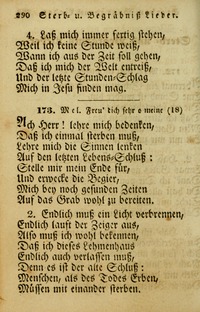 290 Sterb- u. Begräbniß Lieder.
4. Laß mich immer fertig stehen,
Weil ich keine Stunde weiß,
Wann ich aus der Zeit soll gehen,
Daß mich der Welt entreiß,
Und der letzte Stunden-Schlag
Mich in Jesu finden mag.
173. Mel. Freu' dich sehr o meine (18)
Ach Herr! lehre mich bedenken,
Daß ich einmal sterben muß,
Lehre mich die Sinnen lenken
Auf den letzten Lebens-Schluß:
Stelle mir mein Ende für,
Und erwecke die Begier,
Mich bey noch gesunden Zeiten
Auf das Grab wohl zu bereiten.
2. Endlich muß ein Licht verbrennen,
Endlich lauft der Zeiger aus,
Also muß ich wohl bekennen,
Daß ich dieses Lehmenhaus
Endlich auch verlassen muß,
Denn es ist der alte Schluß:
Menschen, als des Todes Erben,
Müssen mit einander sterben.